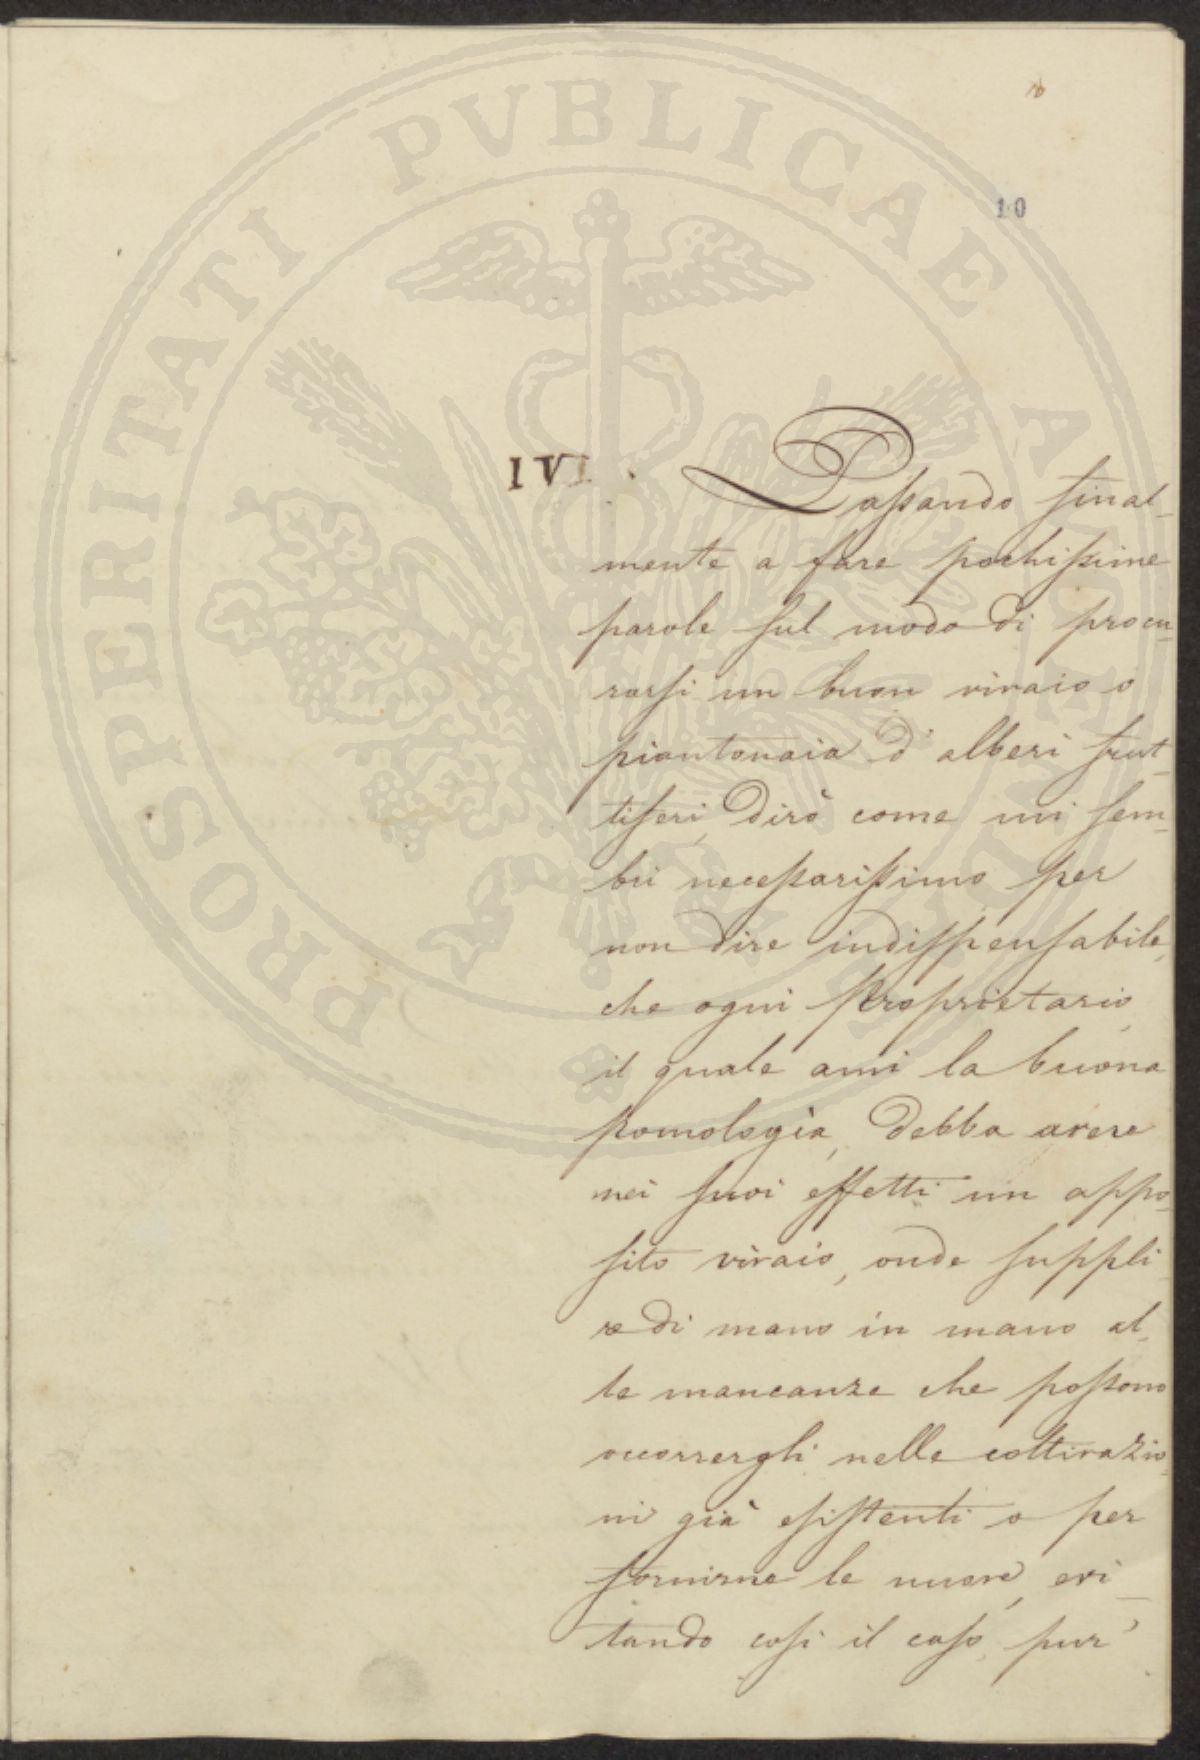 PROSPERITATI PVBLICAE AVGENDAE
10
10
IVI.
Passando final-
mente a fare pochissime
parole sul modo di procu-
rarsi un buon vivaio o
piantonaia d'alberi frut-
tiferi, dirò come mi sem-
bri necessarissimo per
non dire indisspensabile,
che ogni Proprietario
il quale ami la buona
pomologìa, debba avere
nei suoi effetti un appo-
sito vivaio, onde suppli-
re di mano in mano al-
le mancanze che possono
occorrergli nelle coltivazio-
ni già esistenti o per
fornirne le nuove, evi-
tando così il caso, pur